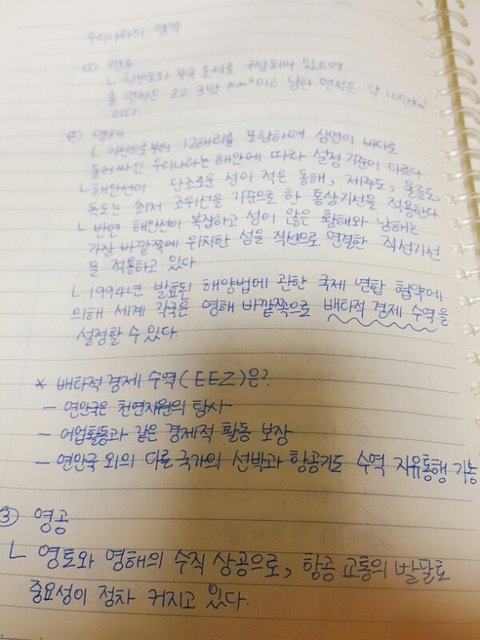 우리나라의 영역
① 영토
ㄴ 한반도와 부속 도서로 구성되어 있으며
총 면적은 22.3만 km²이고 남한 면적은 약 10만km²
이다
② 영해
ㄴ 기선으로부터 12해리를 포함하며 삼면이 바다로
둘러싸인 우리나라는 해안에 따라 설정 기준이 다르다
ㄴ 해안선이 단조로운 섬이 적은 동해, 제주도, 울릉도,
독도는 최저 조위선을 기준으로 한 통상기선을 적용한다
ㄴ 반면 해안선이 복잡하고 섬이 많은 황해와 남해는
가장 바깥쪽에 위치한 섬을 직선으로 연결한 직선기선
을 적용하고 있다.
ㄴ 1994년 발효된 해양법에 관한 국제 연합 협약에
의해 세계 각국은 영해 바깥쪽으로 배타적 경제 수역을
설정할 수 있다.
* 배타적 경제 수역(EEZ)은?
- 연안국은 천연자원의 탐사
- 어업활동과 같은 경제적 활동 보장
- 연안국 외의 다른 국가의 선박과 항공기도 수역 자유통행 가능
③ 영공
ㄴ 영토와 영해의 수직 상공으로, 항공 교통의 발달로
중요성이 점차 커지고 있다.